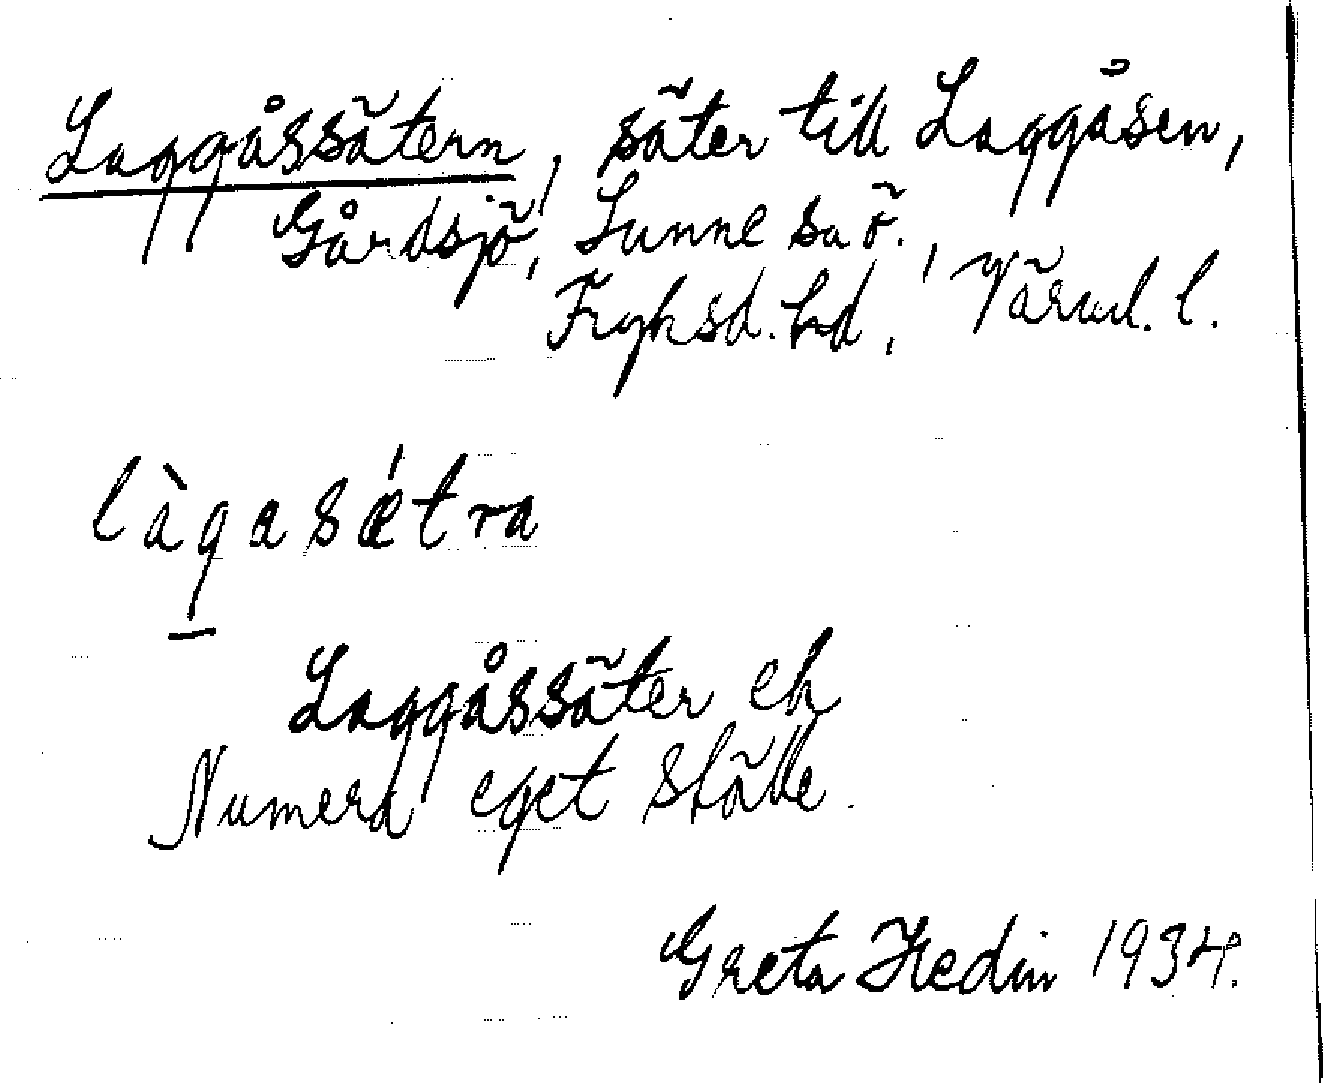 Laggåssätern, säter till Laggåsen,
Gårdsjö, Sunne sn ö.,
Fryksd. hd, Värml. l.
làgasǽtra
Laggåssäter ek
Numera eget ställe.
Greta Hedin 1934.